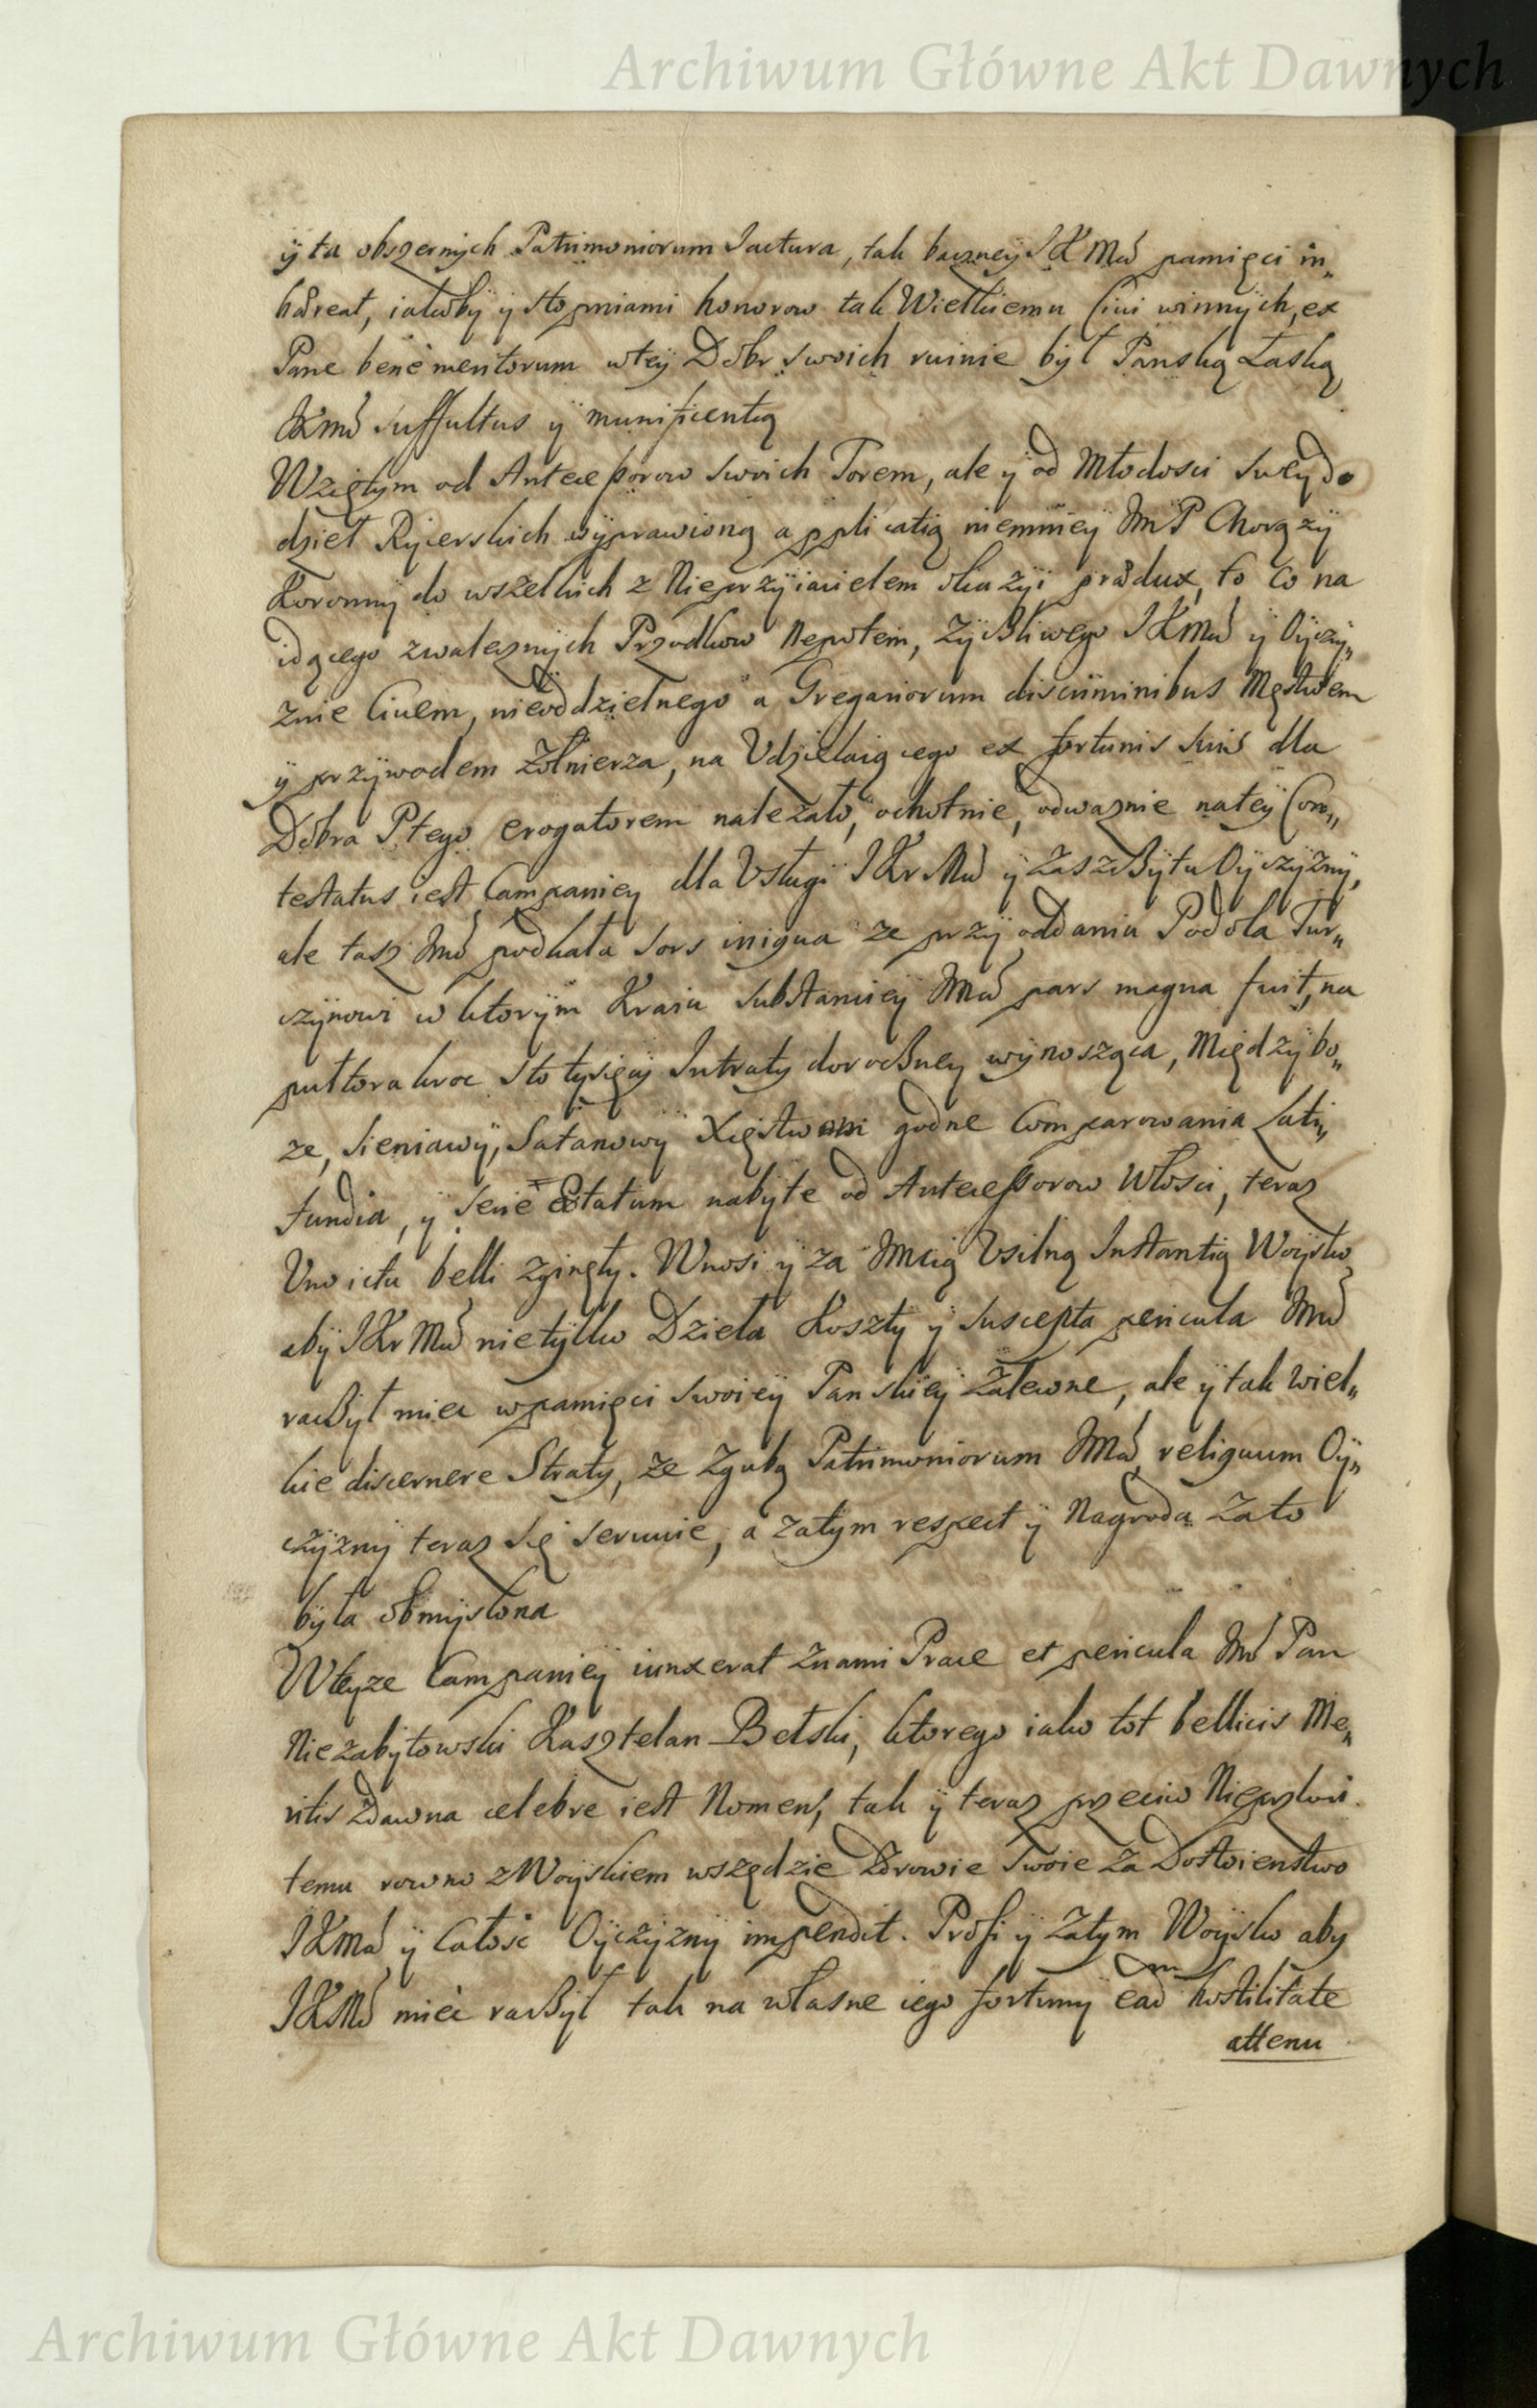 Archiwum Główne Akt Dawnych
ÿ ta obszernych Patrimoniorum Jactura, tak baczneÿ JKMći pamięci in„
hæreat, iakoby ÿ stopniami honorow tak Wielkiemu Civi winnych, ex
Pane bene meritorum wteÿ Dobr swoich ruinie bÿł Panską Łaską
JKmći suffultus ÿ munificentią
Wziętym od Antecessorow swoich Torem, ale ÿ od Młodosci sweÿ do
dzieł Rycerskich wÿprawioną applicatią niemnieÿ JmP Chorązÿ
Koronny do wszelkich z Nieprzÿiacielem okazÿi prædux, to co na
idącego zwalecznych Przodkow Nepotem, Zÿcżliwego JKMći ÿ Oÿczÿ„
znie Civem, nieoddzielnego a Gregariorum discriminibus Męstwem
ÿ przÿwodem Zołnierza, na Udzielaiącego ex fortunis suis dla
Dobra Ptego erogatorem nalezało, ochotnie, odwaznie nateÿ Con„
testatus iest Campanieÿ dla Usługi JKrMći ÿ Zaszcżÿtu Oÿczÿznÿ,
ale tasz Jmći podkała sors iniqua ze przÿ oddaniu Podola Tur„
czÿnowi w ktorÿm Kraiu substancieÿ JMći pars magna fuit, na
pułtorakroc sto tysięcÿ Intraty dorocżney wÿnoszącą, Międzÿbo„
ze, Sieniawÿ, Satanowÿ Xięstwami godne Comparowania Lati„
fundia, ÿ serie Ætatum nabÿte od Antecessorow Włosci, teraz
Uno ictu belli zginęły. Wnosi ÿ za JMcią Usilną Instantią Woÿsko
abÿ JKrMć nietÿlko Dzieła Koszty ÿ suscepta pericula Jmći
racżÿł miec wpamięci swoieÿ Panskieÿ Zalecone, ale ÿ tak wiel„
kie discernere Straty, ze Zgubą Patrimoniorum JMći reliquum Oÿ„
czÿznÿ teraz się serwuie, a zatym respect ÿ Nagroda Zato
bÿła obmÿslona
Wteÿze Campanieÿ iunxerat Znami Prace et pericula Jmć Pan
Niezabÿtowski Kasztelan Bełski, ktorego iako tot bellicis Me„
ritis zdawna celebre iest Nomen, tak ÿ teraz przeciw Nieprzÿiacie
temu rowno z Woÿskiem wszędzie Zdrowie swoie Za Dostoienstwo
JKmći ÿ Całosc Oÿczÿznÿ impendit. Prosi ÿ Zatym Woÿsko aby
JKMć miec racżÿł tak na własne iego fortunÿ eadm hostilitate
attenu
Archiwum Główne Akt Dawnych